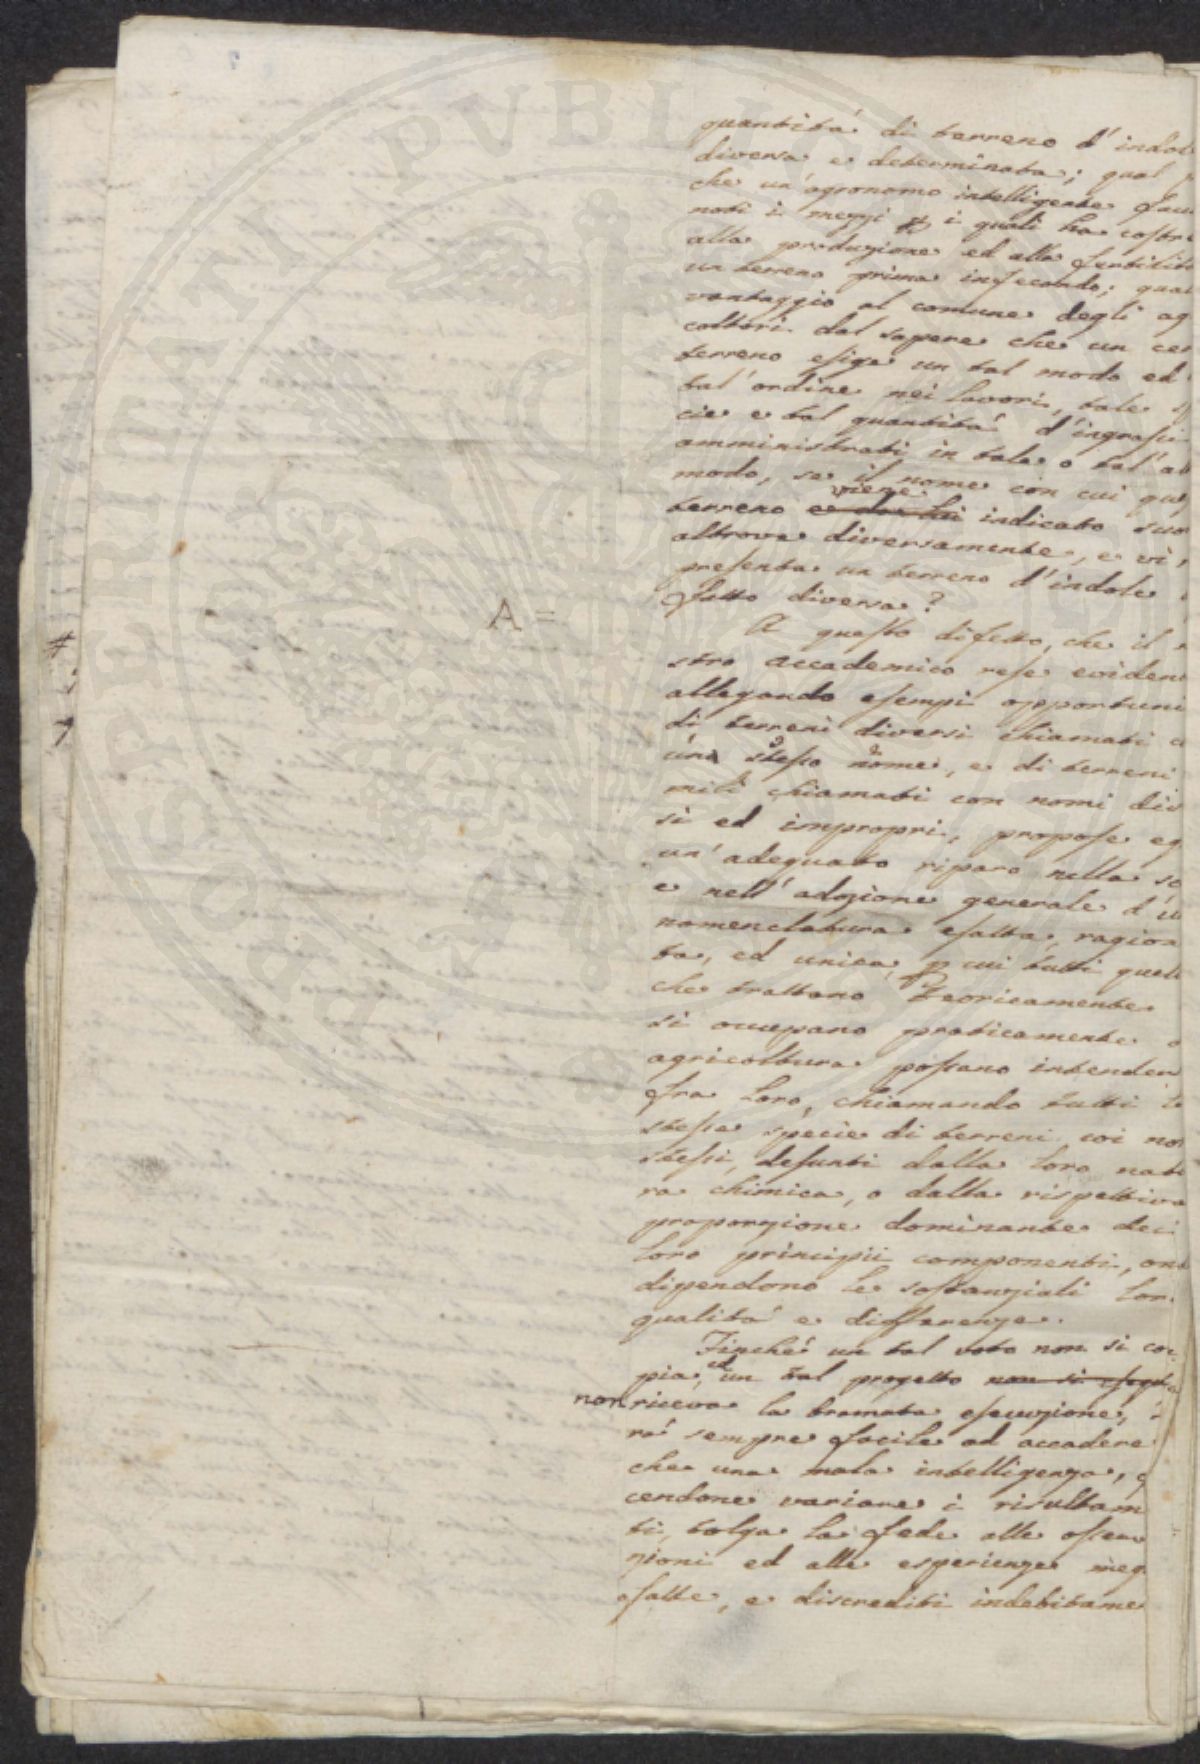 quantitá di terreno d'indol
diversa e determinata; qual
che un'agronomo intelligente facc
noti i mezzi p i quali ha costr
alla produzione ed alla fertilità
un terreno prima infecondo; qual
vantaggio al comune degli ag
coltori dal sapere che un cer
terreno esige un tal modo ed
tal'ordine nei lavori, tale
cie e tal quantitá d'ingrassi
amministrati in tale o tal'al
modo, se il nome con cui que
viene
terreno e da lui indicato suo
altrove diversamente, e vi
presenta un terreno d'indole
fatto diversa?
A =
A questo difetto, che il
stro accademico rese eviden
allegando esempi opportuni
di terreni diversi chiamati
uno stesso nome, e di terreni
mili chiamati con nomi dis
si ed improprj, propose eg
un'adequato riparo nella
e nell'adozione generale d'u
nomenclatura esatta, ragiona
ta, ed unica, p cui tutti quell
che trattano teoricamente
si occupano praticamente
agricoltura possano intender
fra loro, chiamando tutti le
stesse specie di terreni coi no
stessi, desunti dalla loro natu
ra chimica, o dalla rispettiva
proporzione dominante dei
loro principii componenti, ond
dipendono le sostanziali lor
qualitá e differenze.
Finché un tal voto non si co
pia, ed un tal progetto non si esegu
non riceva la bramata esecuzione,
rá sempre facile ad accadere
che una mala intelligenza,
cendone variare i risultam
ti, tolga la fede alle osserv
zioni ed alle esperienze meg
esatte, e discrediti indebitame
#